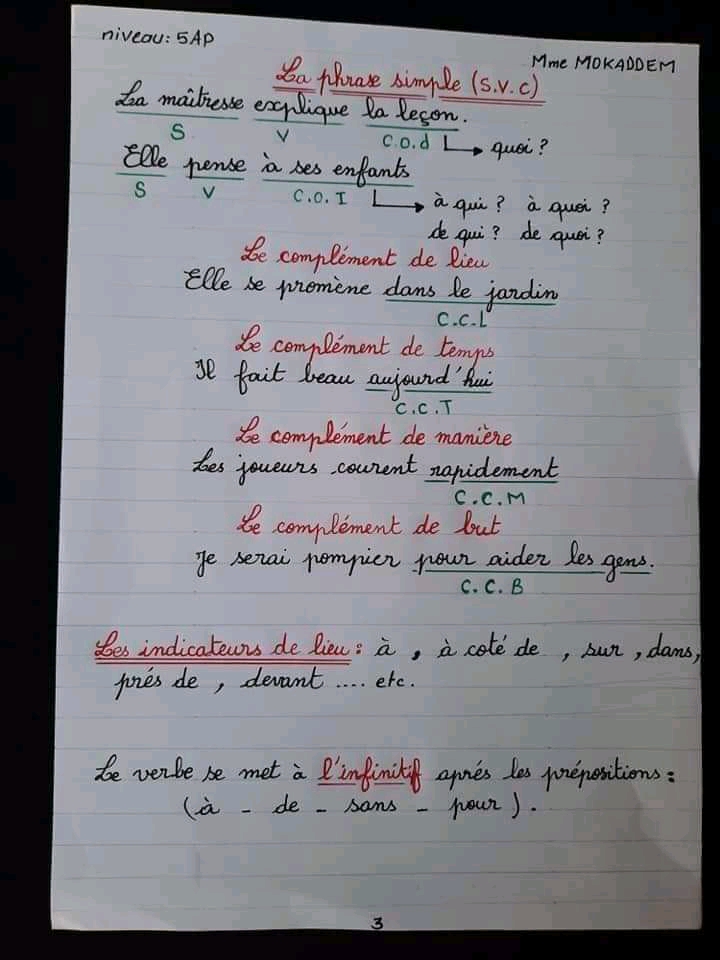 niveau: 5AP
Mme MOKADDEM
La phrase simple (s.v.c)
La maîtresse explique la leçon.
S V C.O.d quoi ?
Elle pense à ses enfants
S V C.O.I à qui ? à quoi ?
de qui ? de quoi ?
Le complément de lieu
Elle se promène dans le jardin
C.C.L
Le complément de temps
Il fait beau aujourd'hui
C.C.T
Le complément de manière
Les joueurs courent rapidement
C.C.M
Le complément de but
Je serai pompier pour aider les gens.
C.C.B
Les indicateurs de lieu : à , à coté de , sur , dans,
prés de , devant .... etc.
Le verbe se met à l'infinitif aprés les prépositions :
(à - de - sans - pour ).
3